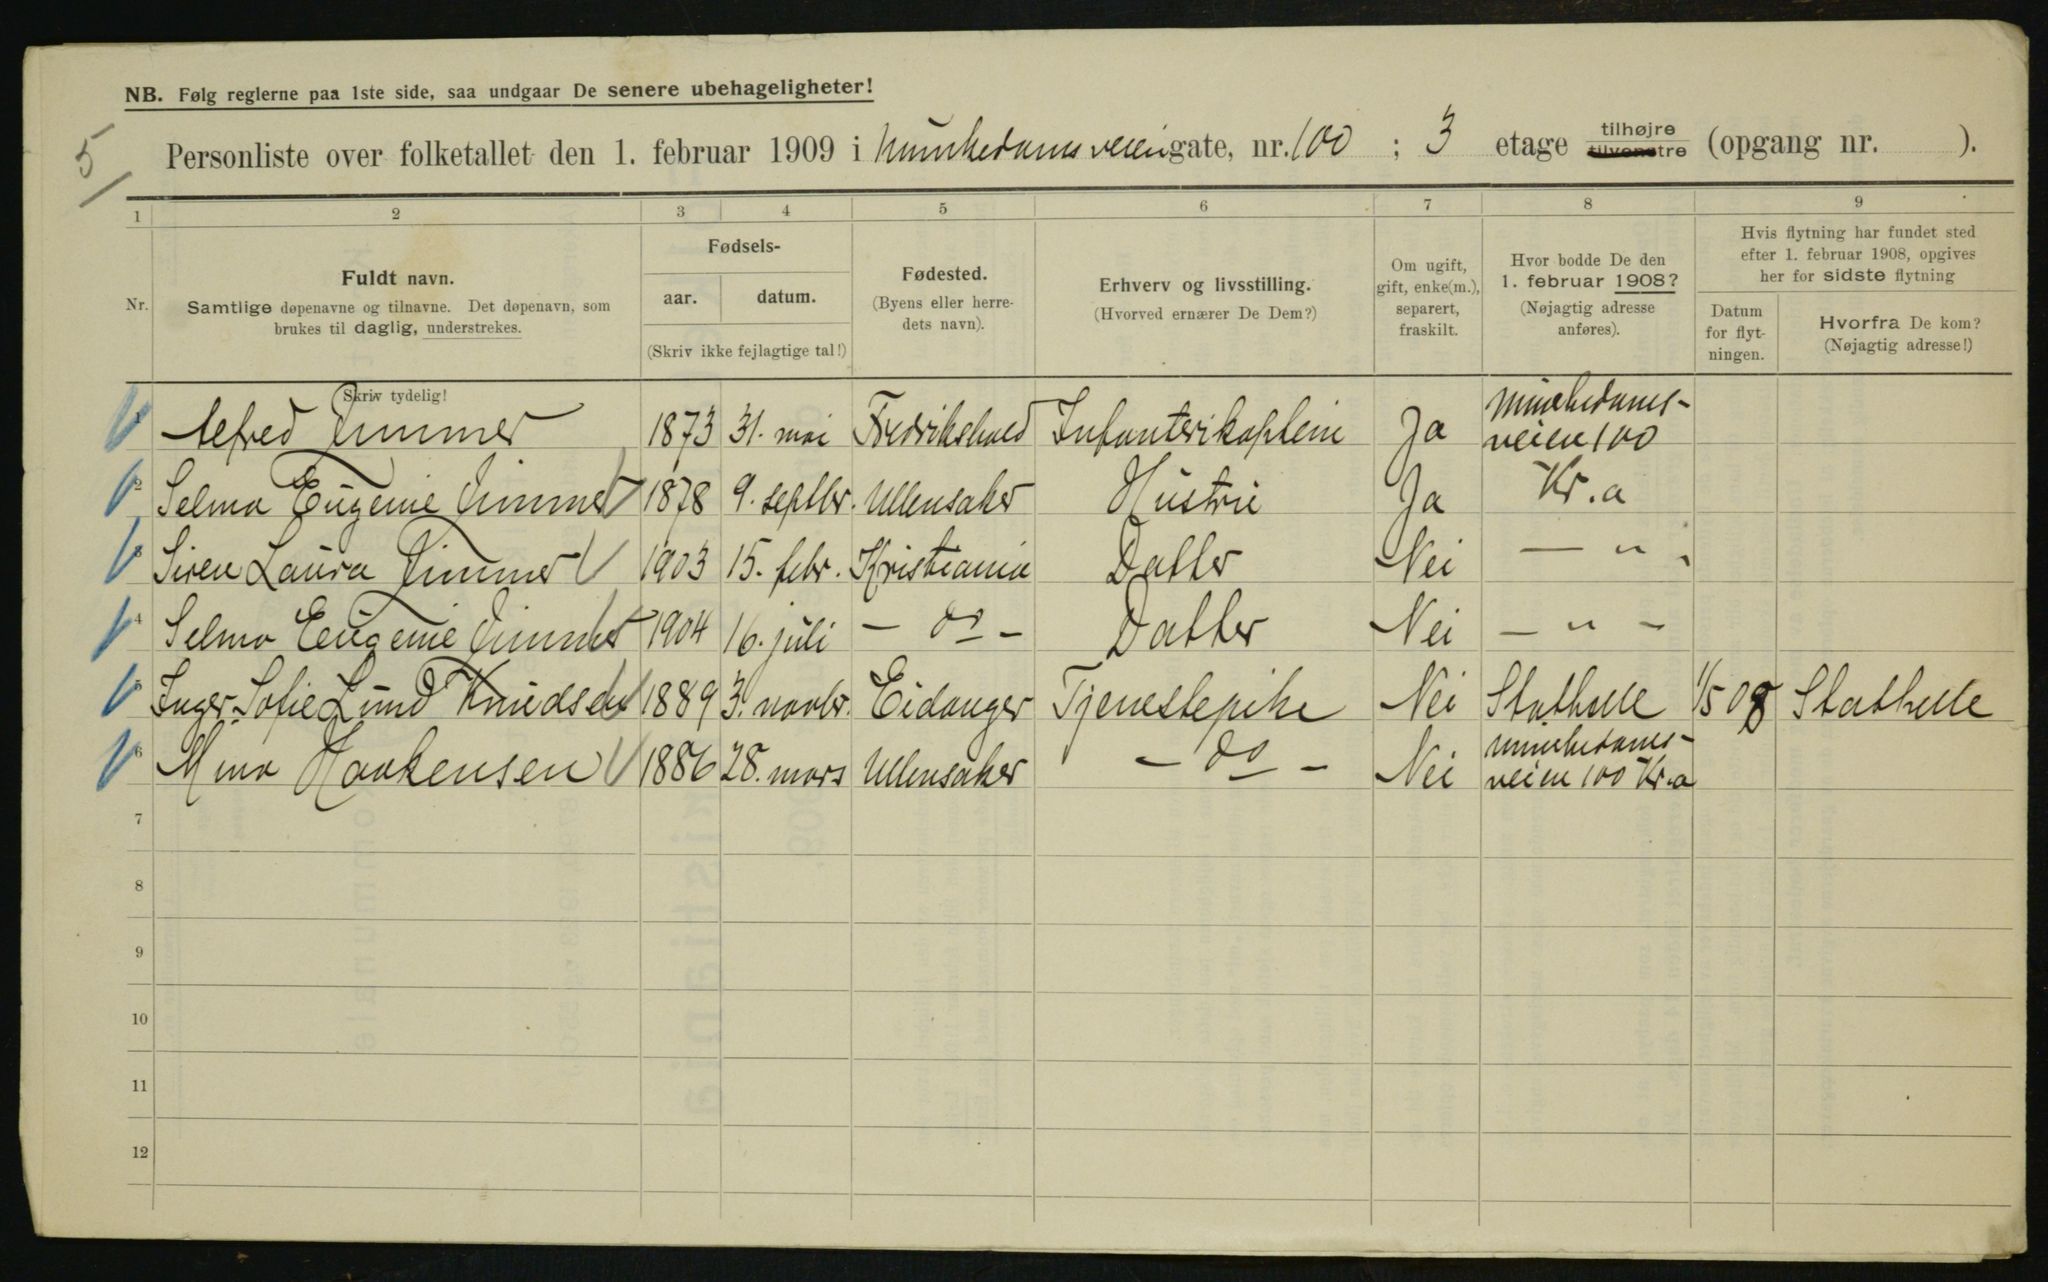 NB. Følg reglerne paa 1ste side, saa undgaar De senere ubehageligheter!
5
Personliste over folketallet den 1. februar 1909 i Munkedamsveien gate, nr. 100 ; 3 etage tilhøjre tilvenstre (opgang nr. ).
1 2 3 4 5 6 7 8 9
Nr.
Fuldt navn.
Samtlige døpenavne og tilnavne. Det døpenavn, som
brukes til daglig, understrekes.
Fødsels-
aar. datum.
(Skriv ikke fejlagtige tal!)
Fødested.
(Byens eller herre-
dets navn).
Erhverv og livsstilling.
(Hvorved ernærer De Dem?)
Om ugift,
gift, enke(m.),
separert,
fraskilt.
Hvor bodde De den
1. februar 1908?
(Nøjagtig adresse
anføres).
Hvis flytning har fundet sted
efter 1. februar 1908, opgives
her for sidste flytning
Datum
for flyt-
ningen.
Hvorfra De kom?
(Nøjagtig adresse!)
Skriv tydelig!
1 Alfred Zimmer 1873 31. mai Fredrikshald Infanterikaptein Ja Munkedams-
veien 100
2 Selma Eugenie Zimmer 1878 9. septbr. Ullensaker Hustru Ja Kr.a
3 Siren Laura Zimmer 1903 15. febr. Kristiania Datter Nei — " -
4 Selma Eugenie Zimmer 1904 16. juli — do — Datter Nei — " —
5 Inger Sofie Lund Knudsen 1889 3. novbr. Eidanger Tjenestepike Nei Stathelle 1/5 08 Stathelle
6 Mina Haakensen 1886 28. mars Ullensaker — do — Nei Munkedams-
veien 100 Kr.a
7
8
9
10
11
12